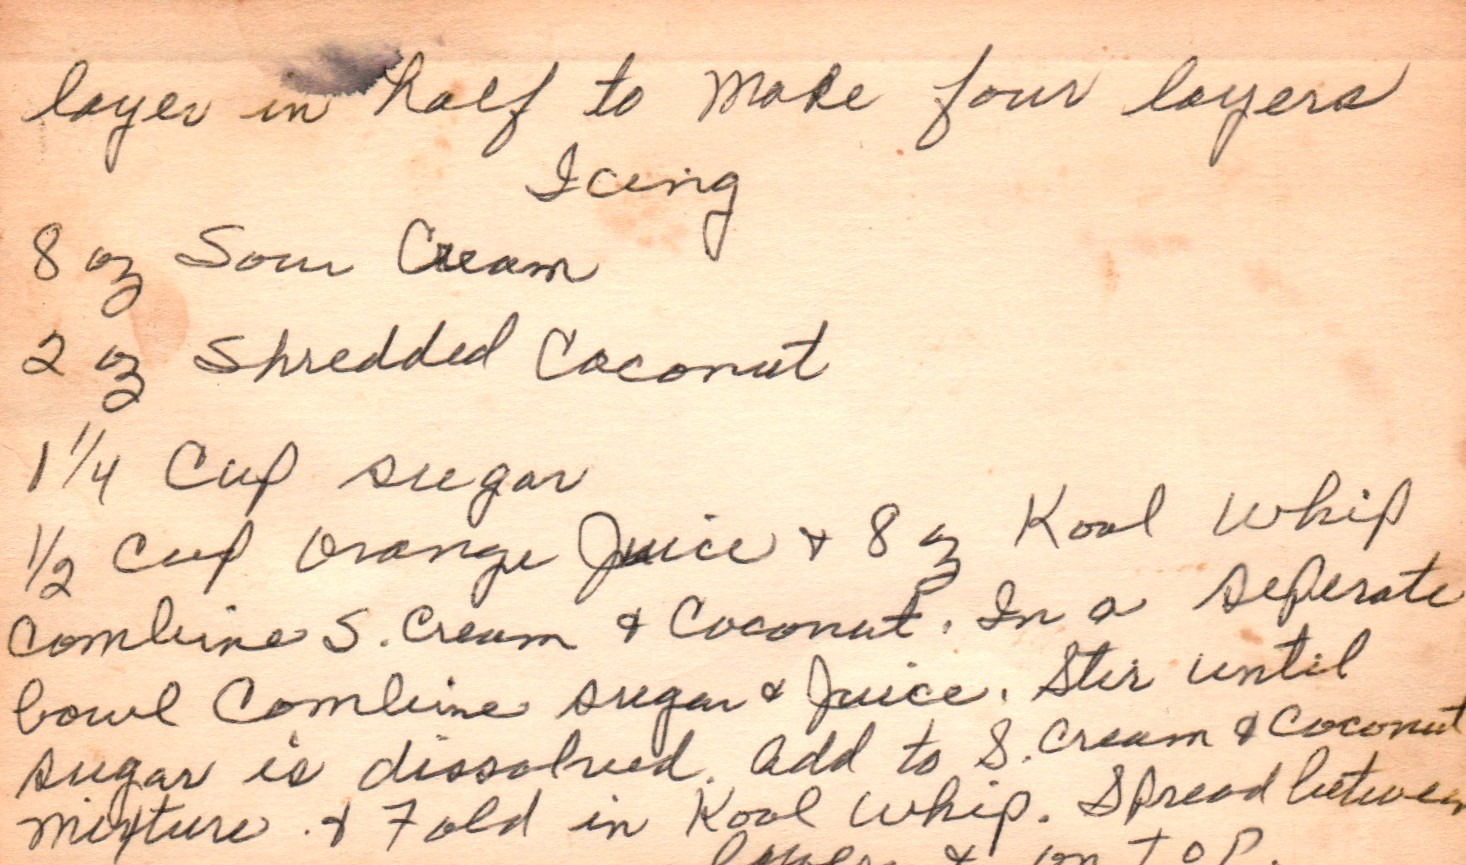 layer in half to Make four layers
Icing
8 oz Sour Cream
2 oz Shredded Coconut
1 1/4 Cup sugar
1/2 Cup Orange Juice & 8 oz Kool Whip
Combine S. Cream & Coconut. In a seperate
bowl Combine sugar & Juice. Stir until
sugar is dissolved. Add to S. Cream & Coconut
mixture. & Fold in Kool Whip. Spread between
layers & on top.